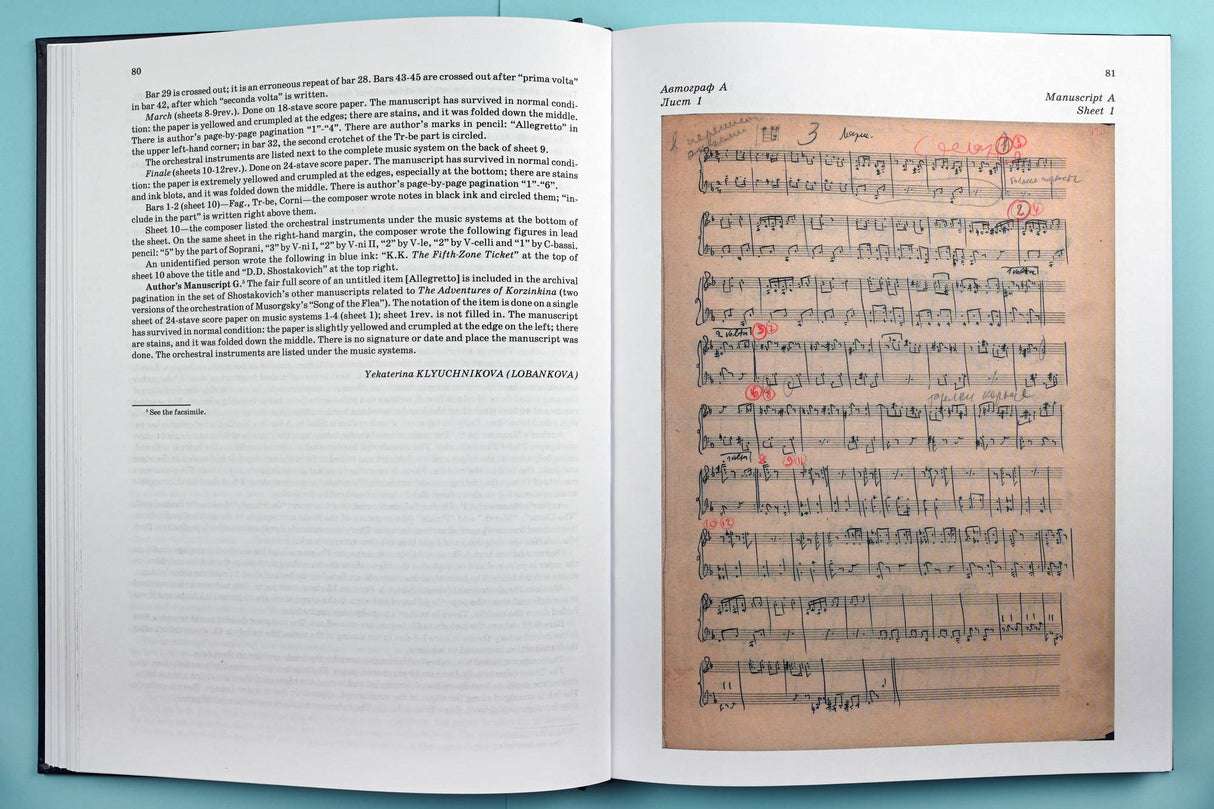 80
Bar 29 is crossed out; it is an erroneous repeat of bar 28. Bars 43-45 are crossed out after “prima volta”
in bar 42, after which “seconda volta” is written.
March (sheets 8-9rev.). Done on 18-stave score paper. The manuscript has survived in normal condi-
tion: the paper is yellowed and crumpled at the edges; there are stains, and it was folded down the middle.
There is author’s page-by-page pagination “1”-“4”. There are author’s marks in pencil: “Allegretto” in
the upper left-hand corner; in bar 32, the second crotchet of the Tr-be part is circled.
The orchestral instruments are listed next to the complete music system on the back of sheet 9.
Finale (sheets 10-12rev.). Done on 24-stave score paper. The manuscript has survived in normal condi-
tion: the paper is extremely yellowed and crumpled at the edges, especially at the bottom; there are stains
and ink blots, and it was folded down the middle. There is author’s page-by-page pagination “1”-“6”.
Bars 1-2 (sheet 10)—Fag., Tr-be, Corni—the composer wrote notes in black ink and circled them; “in-
clude in the part” is written right above them.
Sheet 10—the composer listed the orchestral instruments under the music systems at the bottom of
the sheet. On the same sheet in the right-hand margin, the composer wrote the following figures in lead
pencil: “5” by the part of Soprani, “3” by V-ni I, “2” by V-ni II, “2” by V-le, “2” by V-celli and “1” by C-bassi.
An unidentified person wrote the following in blue ink: “K.K. The Fifth-Zone Ticket” at the top of
sheet 10 above the title and “D.D. Shostakovich” at the top right.
Author’s Manuscript G.⁵ The fair full score of an untitled item [Allegretto] is included in the archival
pagination in the set of Shostakovich’s other manuscripts related to The Adventures of Korzinkina (two
versions of the orchestration of Musorgsky’s “Song of the Flea”). The notation of the item is done on a single
sheet of 24-stave score paper on music systems 1-4 (sheet 1); sheet 1rev. is not filled in. The manuscript
has survived in normal condition: the paper is slightly yellowed and crumpled at the edge on the left; there
are stains, and it was folded down the middle. There is no signature or date and place the manuscript was
done. The orchestral instruments are listed under the music systems.
Yekaterina KLYUCHNIKOVA (LOBANKOVA)
⁵ See the facsimile.
81
Автограф А
Лист 1
Manuscript A
Sheet 1
3
1 3
2 4
1 volta
2 volta 5 7
6 8
1 volta
9 11
10 12